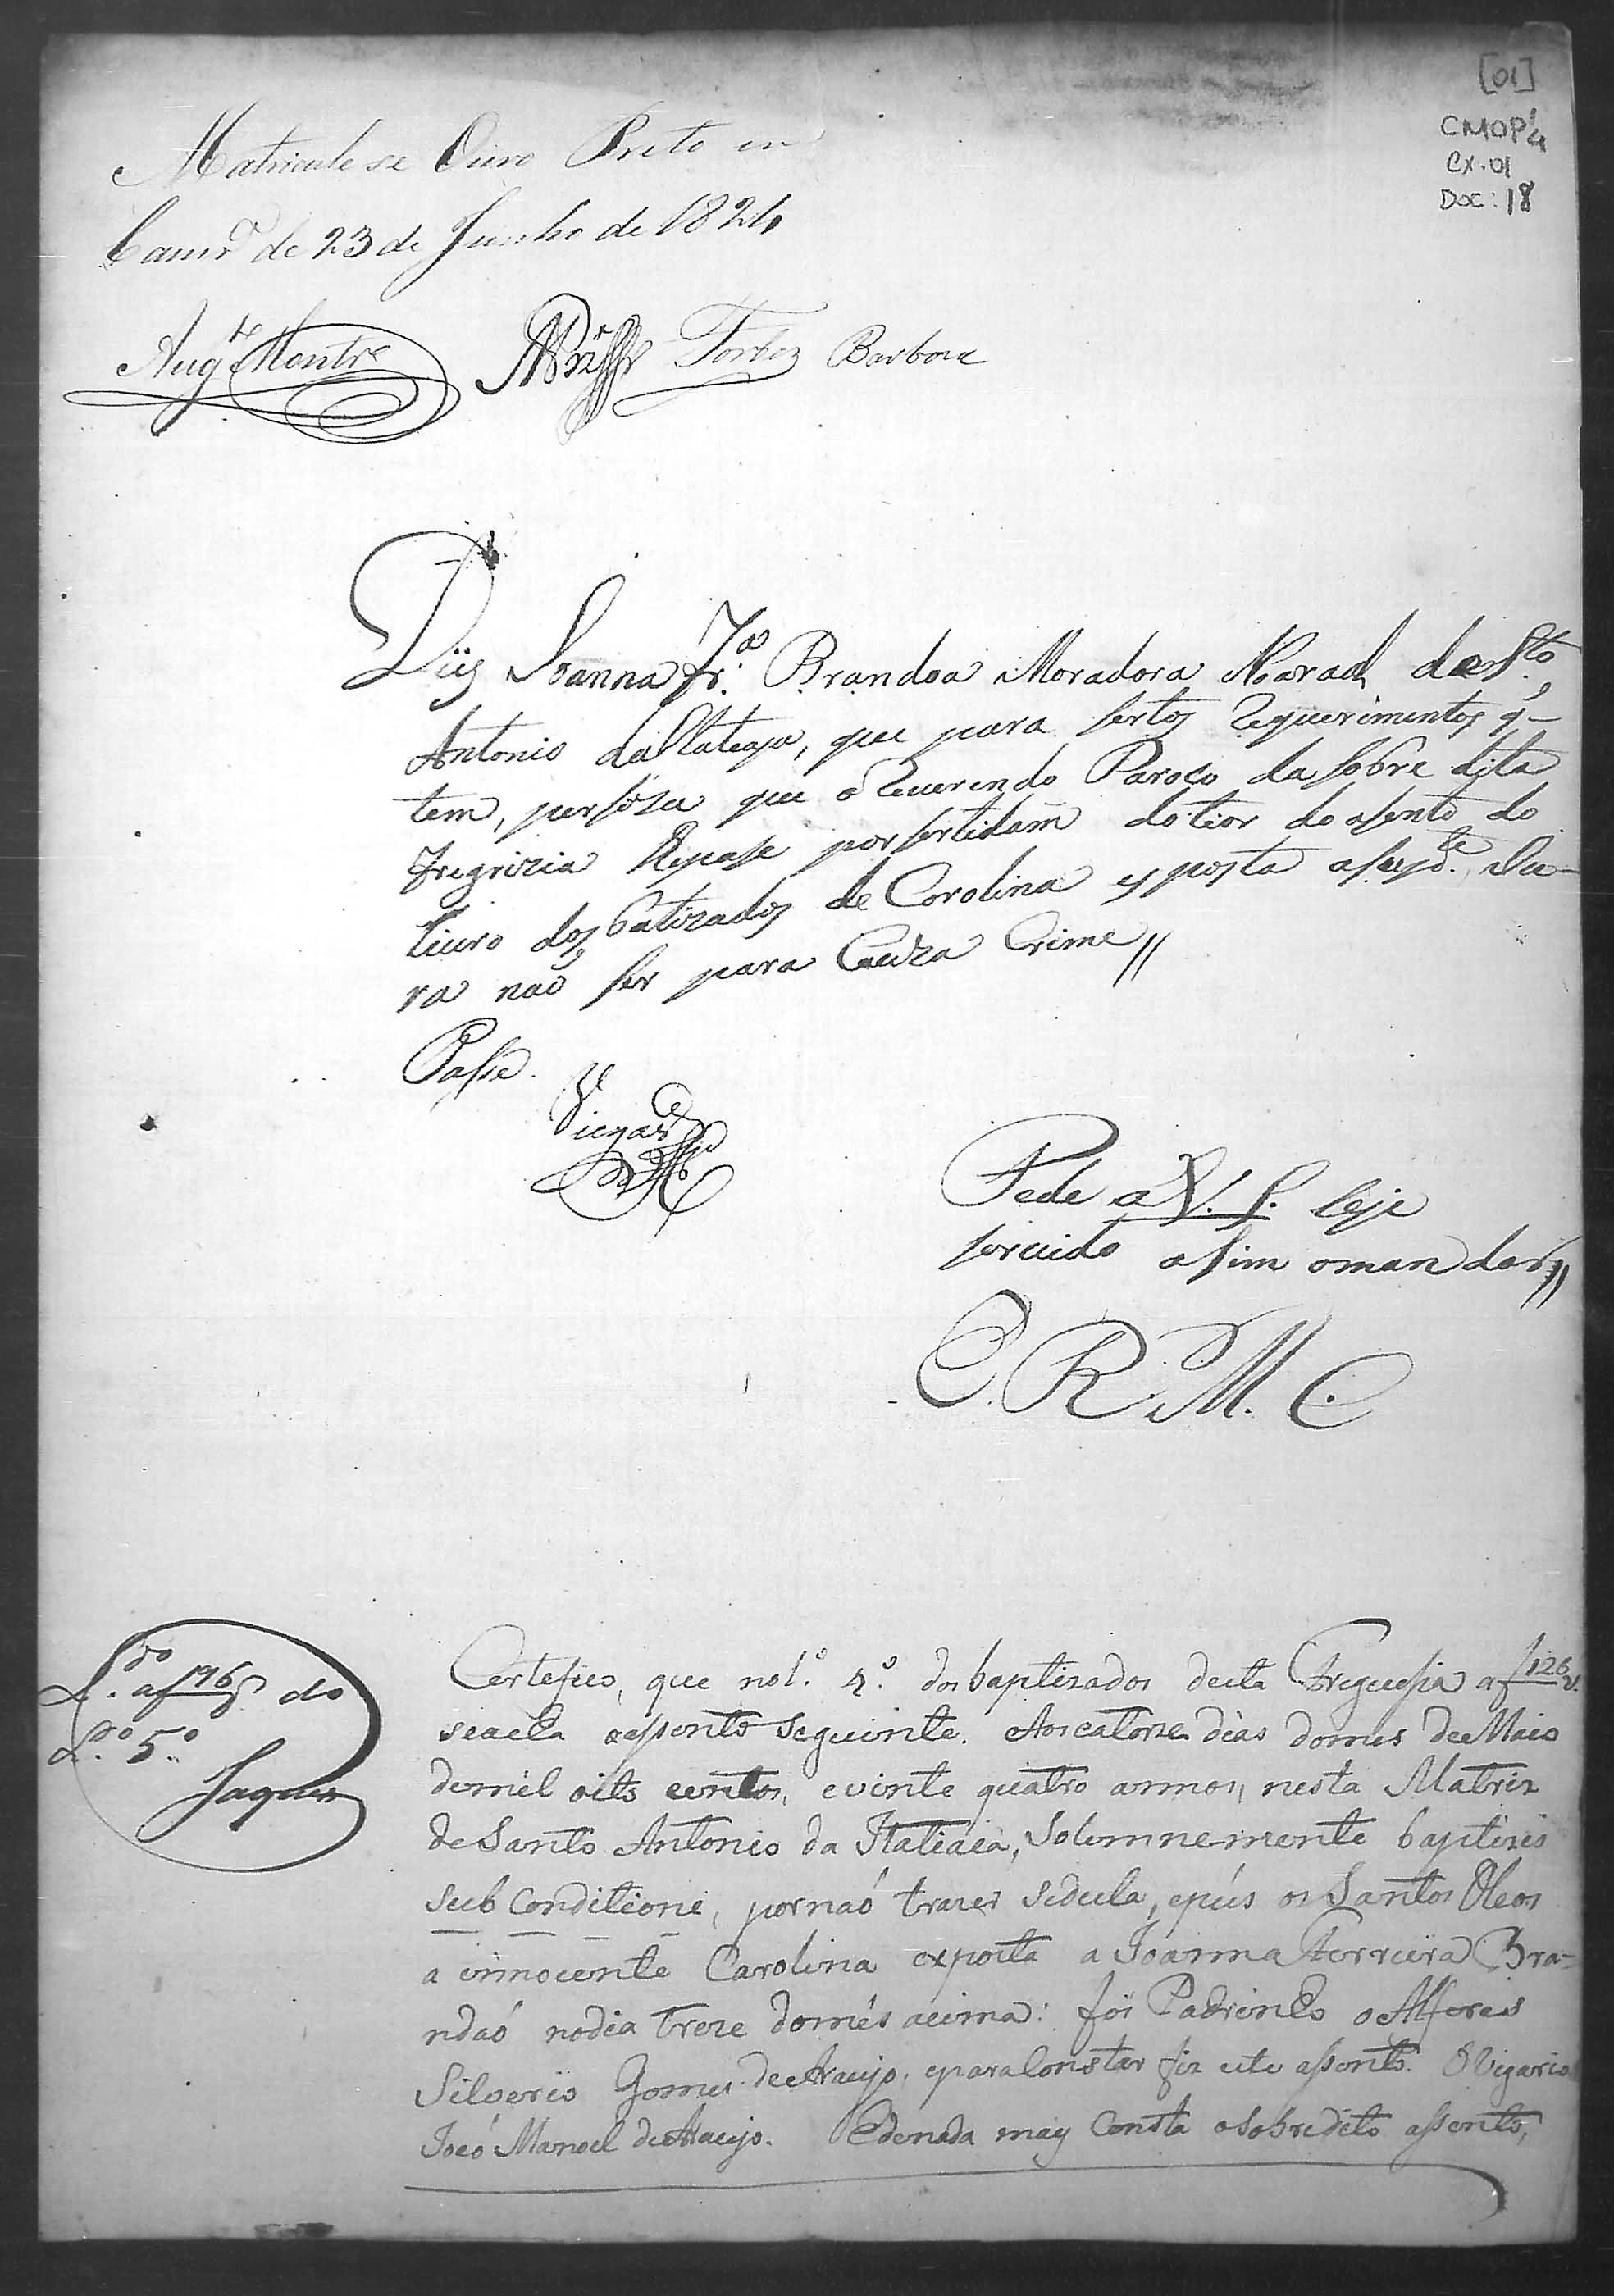 [01]
CMOP¼
CX. 01
DOC: 18
Matricule se Ouro Preto em
Camr.ª de 23 de Junho de 1824
Aug.to Montr.º
Torboz Barboza
Diz Joanna Fr.ª Brandoa Moradora Noarad da Sto
Antonio da Itateaya, que para sertos Requerimentos q.
tem, persiza que o Reverendo Paroco da sobre dita
Fregrizia lhepase por sertidam do tior do asento do
Liuro dos batizados de Corolina esposta a sup.te, Ju-
ra naõ ser para Cauza Crime //
Passe.
Viegas
Pede a V. S. Seje
seruido asim o man dar //
E. R. M. C.
L.do af 196 do
L.º 5.º
Jaques
Certefico, que no l.º 4.º dos baptizados desta Freguesia a f 126 v.
seacha o assento seguinte. Aos catorze dias do mes de Maio
de mil oito centos, e vinte quatro annos, nesta Matriz
de Santo Antonio da Itatiaia, Solemne-mente baptizei
sub conditione, por naó trazer sedula, e pús os Santos Oleos
a innocente Carolina exposta a Joanna Ferreira Bra=
ndaó no dia treze do més acima: foi Padrinho o Alferes
Silverio Gomes de Araujo, e para Constar fiz este assento. O Vigario
Joaó Manoel de Araujo. E de nada mais Consta o sobredito assento,